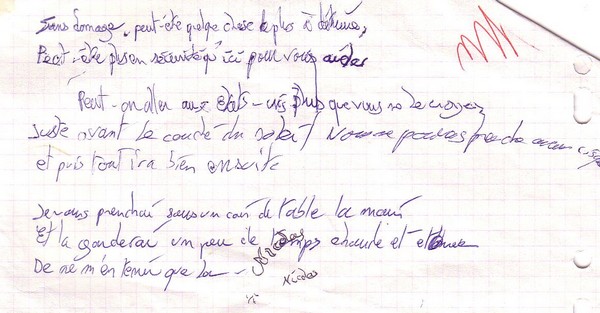 Sans domage, peut-être quelque chose de plus à détruire,
Peut-être plus en sécurité qu'ici pour vous aider
Peut-on aller aux états-unis plus que vous ne le croyez,
Juste avant le couché du soleil, Nous ne pouvons prendre aucun
et puis tout ira bien ensuite
Je vous prendrai sous un coin de table la main
Et la garderai un peu de temps chaude et
De ne m'en tenir que là -
Nicolas
Nicolas